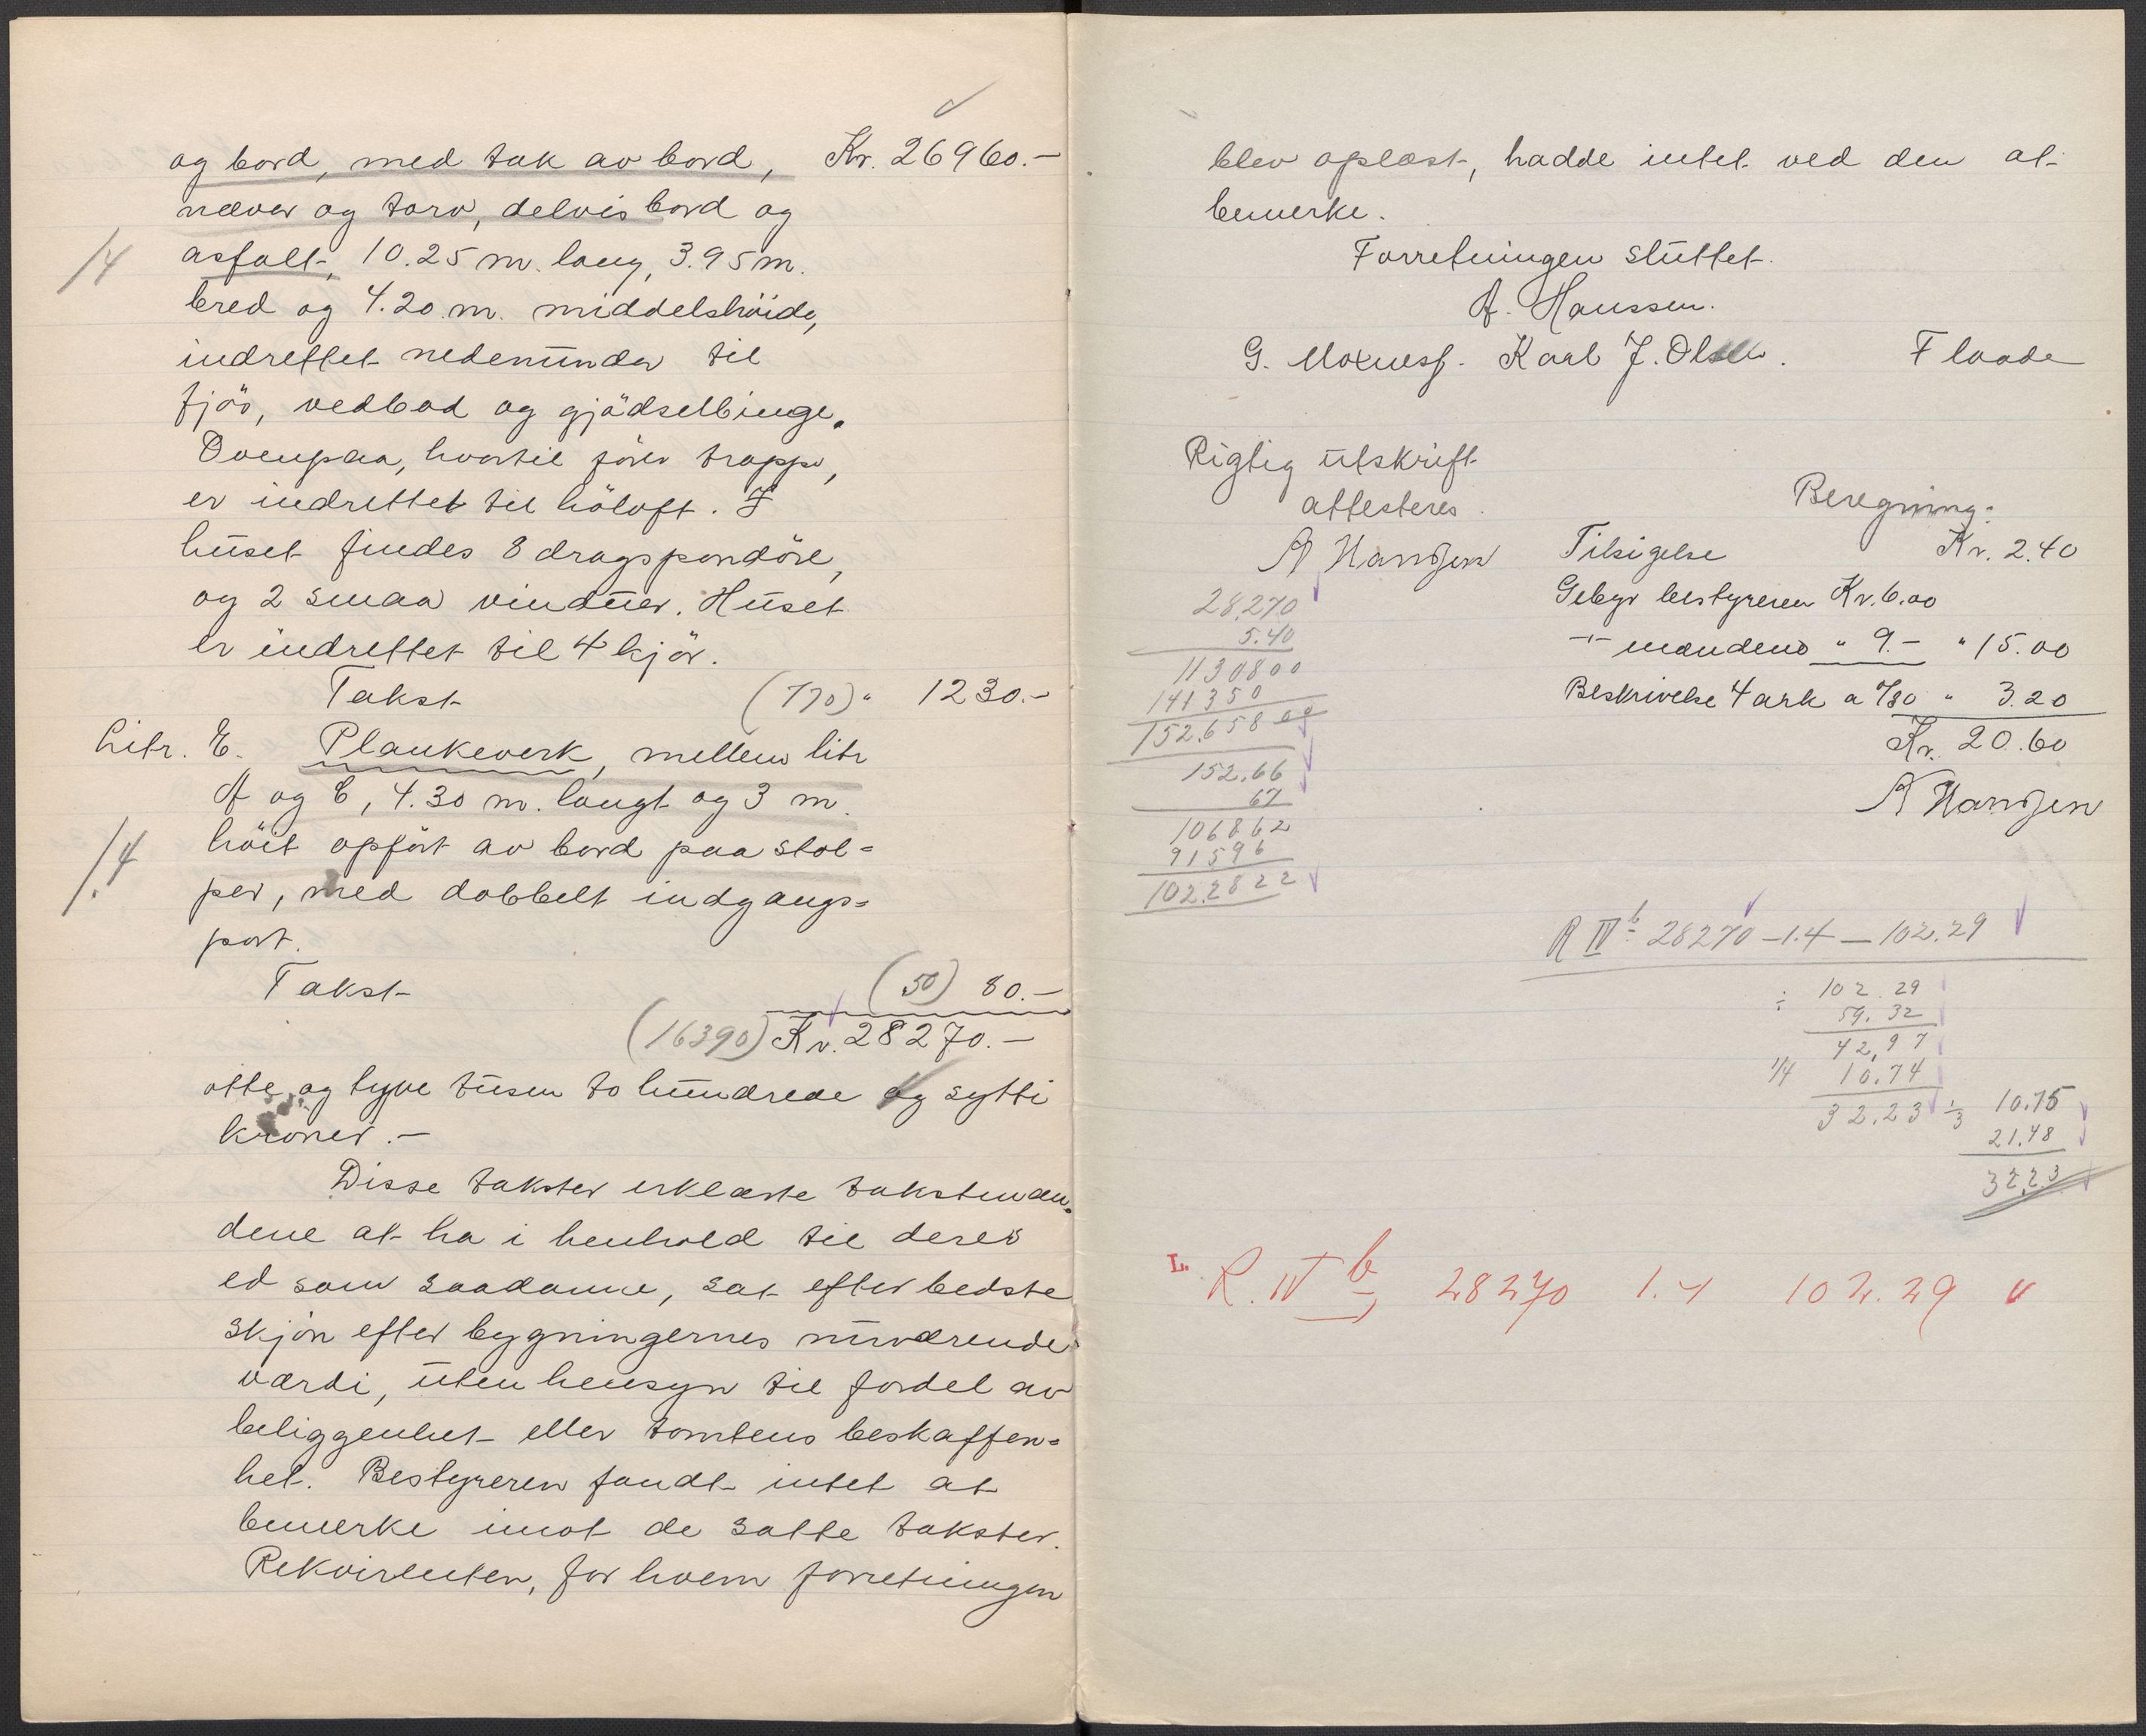 og bord, med tak av bord, Kr. 26960.-
næver og torv, delvis bord og
14 asfalt, 10.25 m. lang, 3.95 m.
bred og 4.20 m. middelshöide,
indrettet nedenunder til
fjös, vedbod og gjödselbinge.
Ovenpaa, hvortil förer trappe,
er indrettet til höloft. I
huset findes 8 dragspondöre,
og 2 smaa vinduer. Huset
er indrettet til 4 kjör.
Takst (770) " 1230.-
Litr. E. Plankeverk, mellem litr
A og C, 4.30 m. langt og 3 m.
1.4 höit opfört av bord paa stol=
per, med dobbelt indgangs=
port.
Takst (50) 80.-
(16390) Kr. 28270.-
otte og tyve tusen to hundrede og sytti
kroner.-
Disse takster erklærte takstmæn.
dene at ha i henhold til deres
ed som saadanne, sat efter bedste
skjön efter bygningernes nuværende
værdi, uten hensyn til fordel av
beliggenhet eller tomtens beskaffen=
het. Bestyreren fandt intet at
bemerke imot de satte takster.
Rekvirenten, for hvem forretningen
blev oplæst, hadde intet ved den at
bemerke.
Forretningen sluttet.
A. Hanssen.
G. Karl J. Olsen. Flaade
Rigtig utskrift
attesteres.
A Hanssen
Beregning:
Tilsigelse Kr. 2.40
Gebyr bestyreren Kr. 6.00
-"- mændene " 9.- " 15.00
Beskrivelse 4 ark a /80 " 3.20
Kr. 20.60
A Hanssen
28270
5.40
1130800
141350
152.658 00
152.66
67
106862
91596
102.2822
R IV b 28270 - 1.4 - 102.29
÷ 102.29
59.32
42,97
1/4 10.74
32.23 1/3 10.75
21.48
32.23
L. R. IV b 28270 1.4 102.29